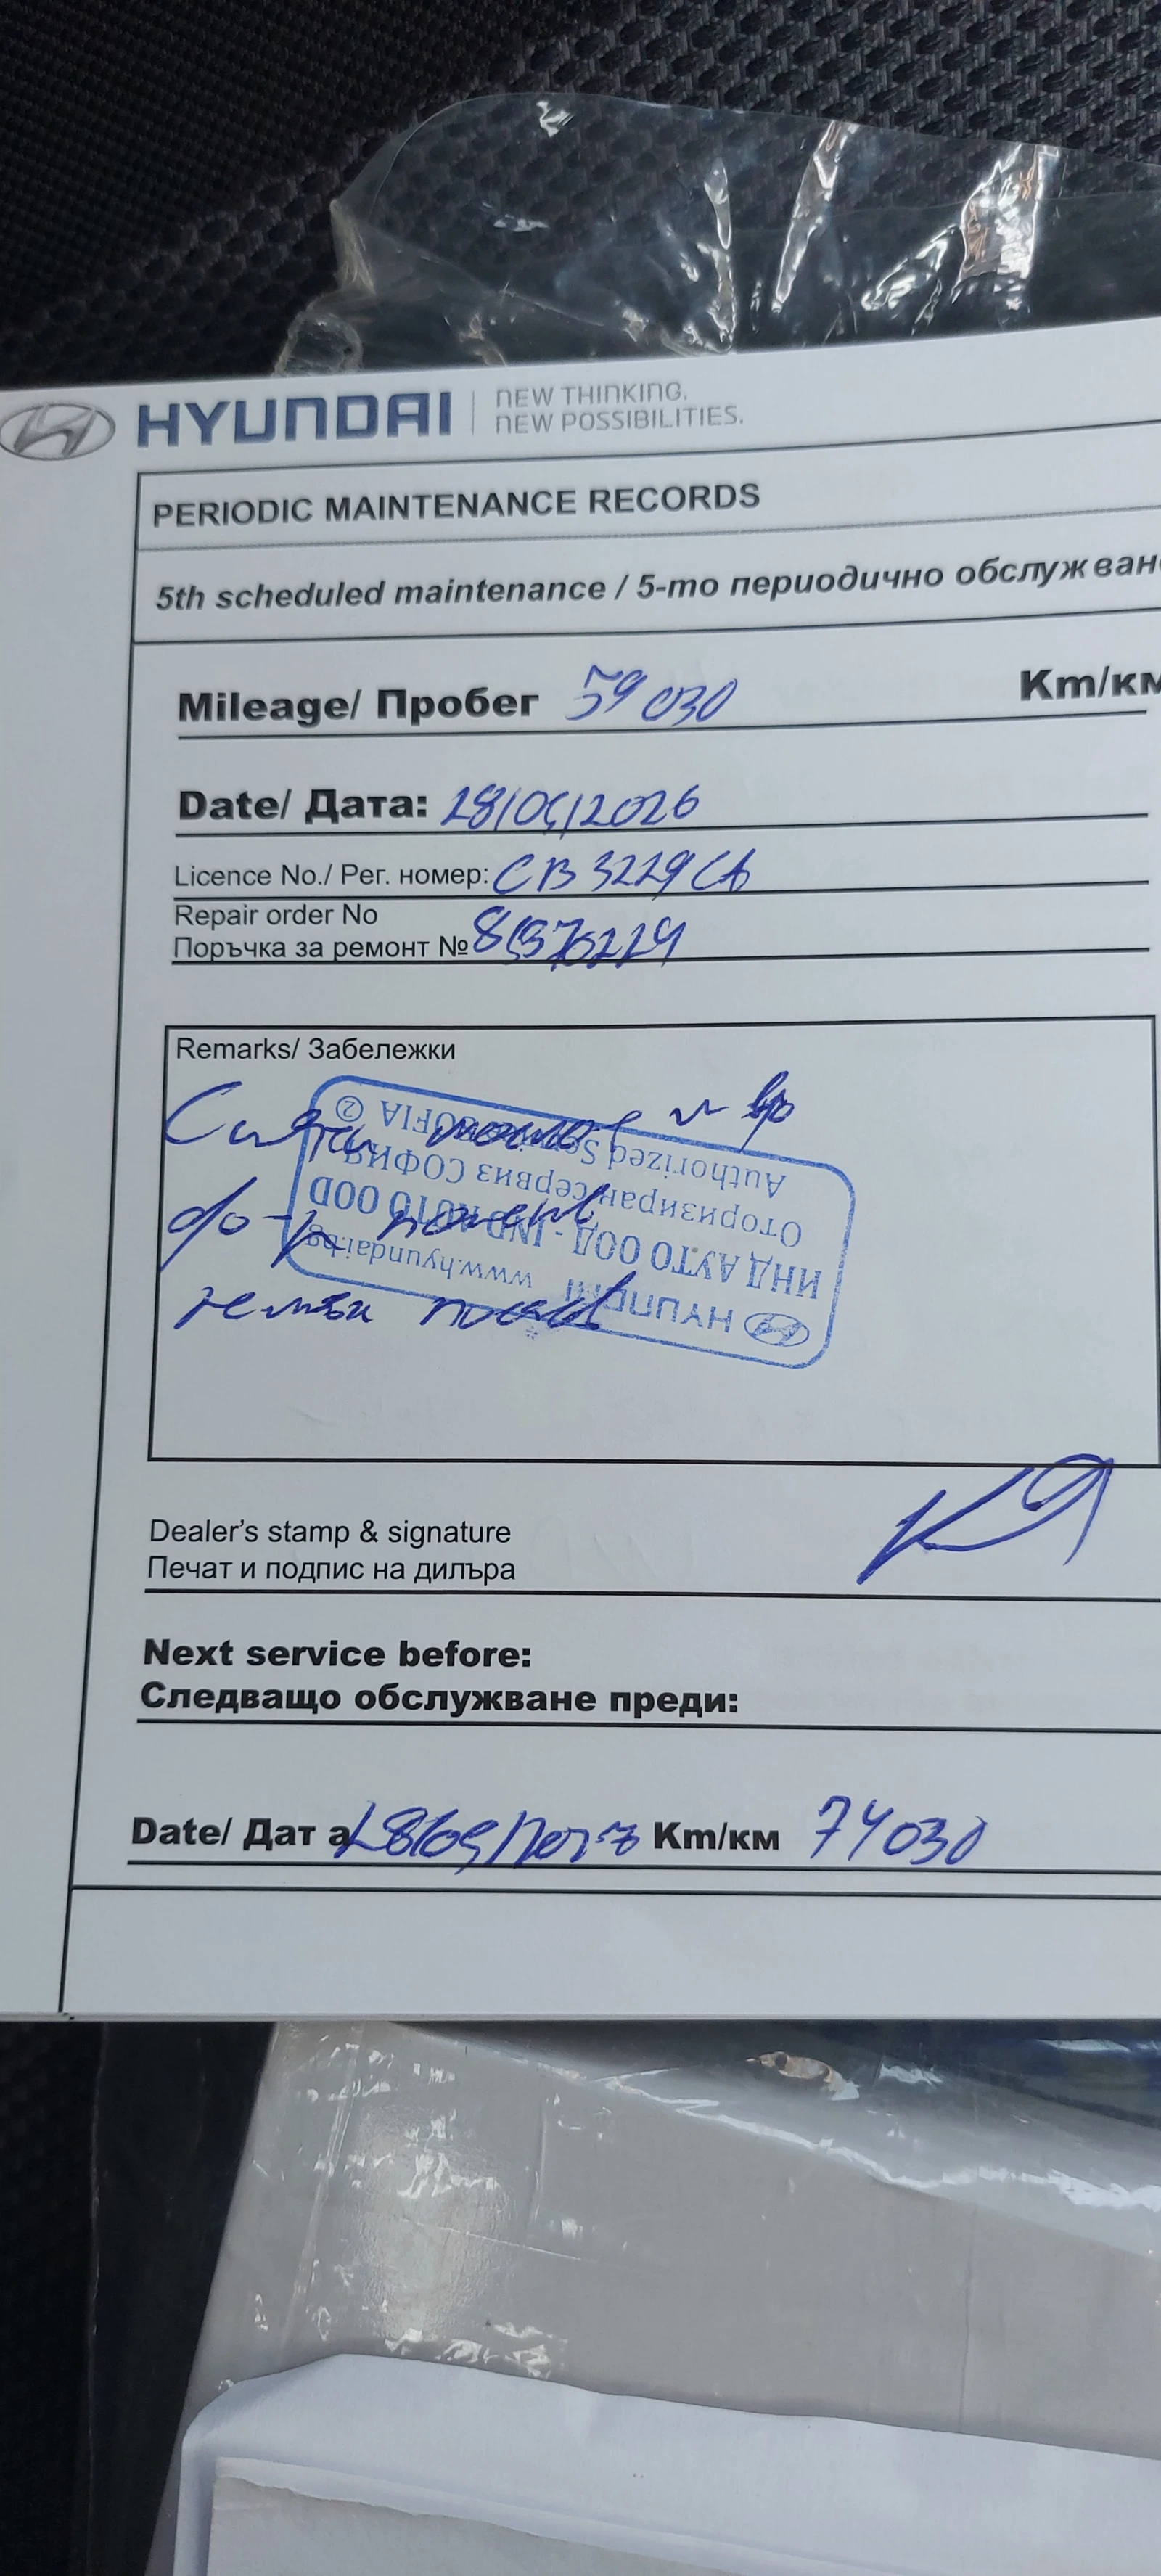 HYUNDAI NEW THINKING.
NEW POSSIBILITIES.
PERIODIC MAINTENANCE RECORDS
5th scheduled maintenance / 5-то периодично обслужван
Mileage/ Пробег 59 030 Km/км
Date/ Дата: 28/04/2026
Licence No./ Рег. номер: СВ 3229 СА
Repair order No
Поръчка за ремонт №
Remarks/ Забележки
HYUNDAI www.hyundai.bg
ИНД АУТО ООД - IND AUTO OOD
Оторизиран сервиз СОФИЯ
Authorized Service SOFIA 2
Dealer's stamp & signature
Печат и подпис на дилъра
Next service before:
Следващо обслужване преди:
Date/ Дат а Km/км 74 030